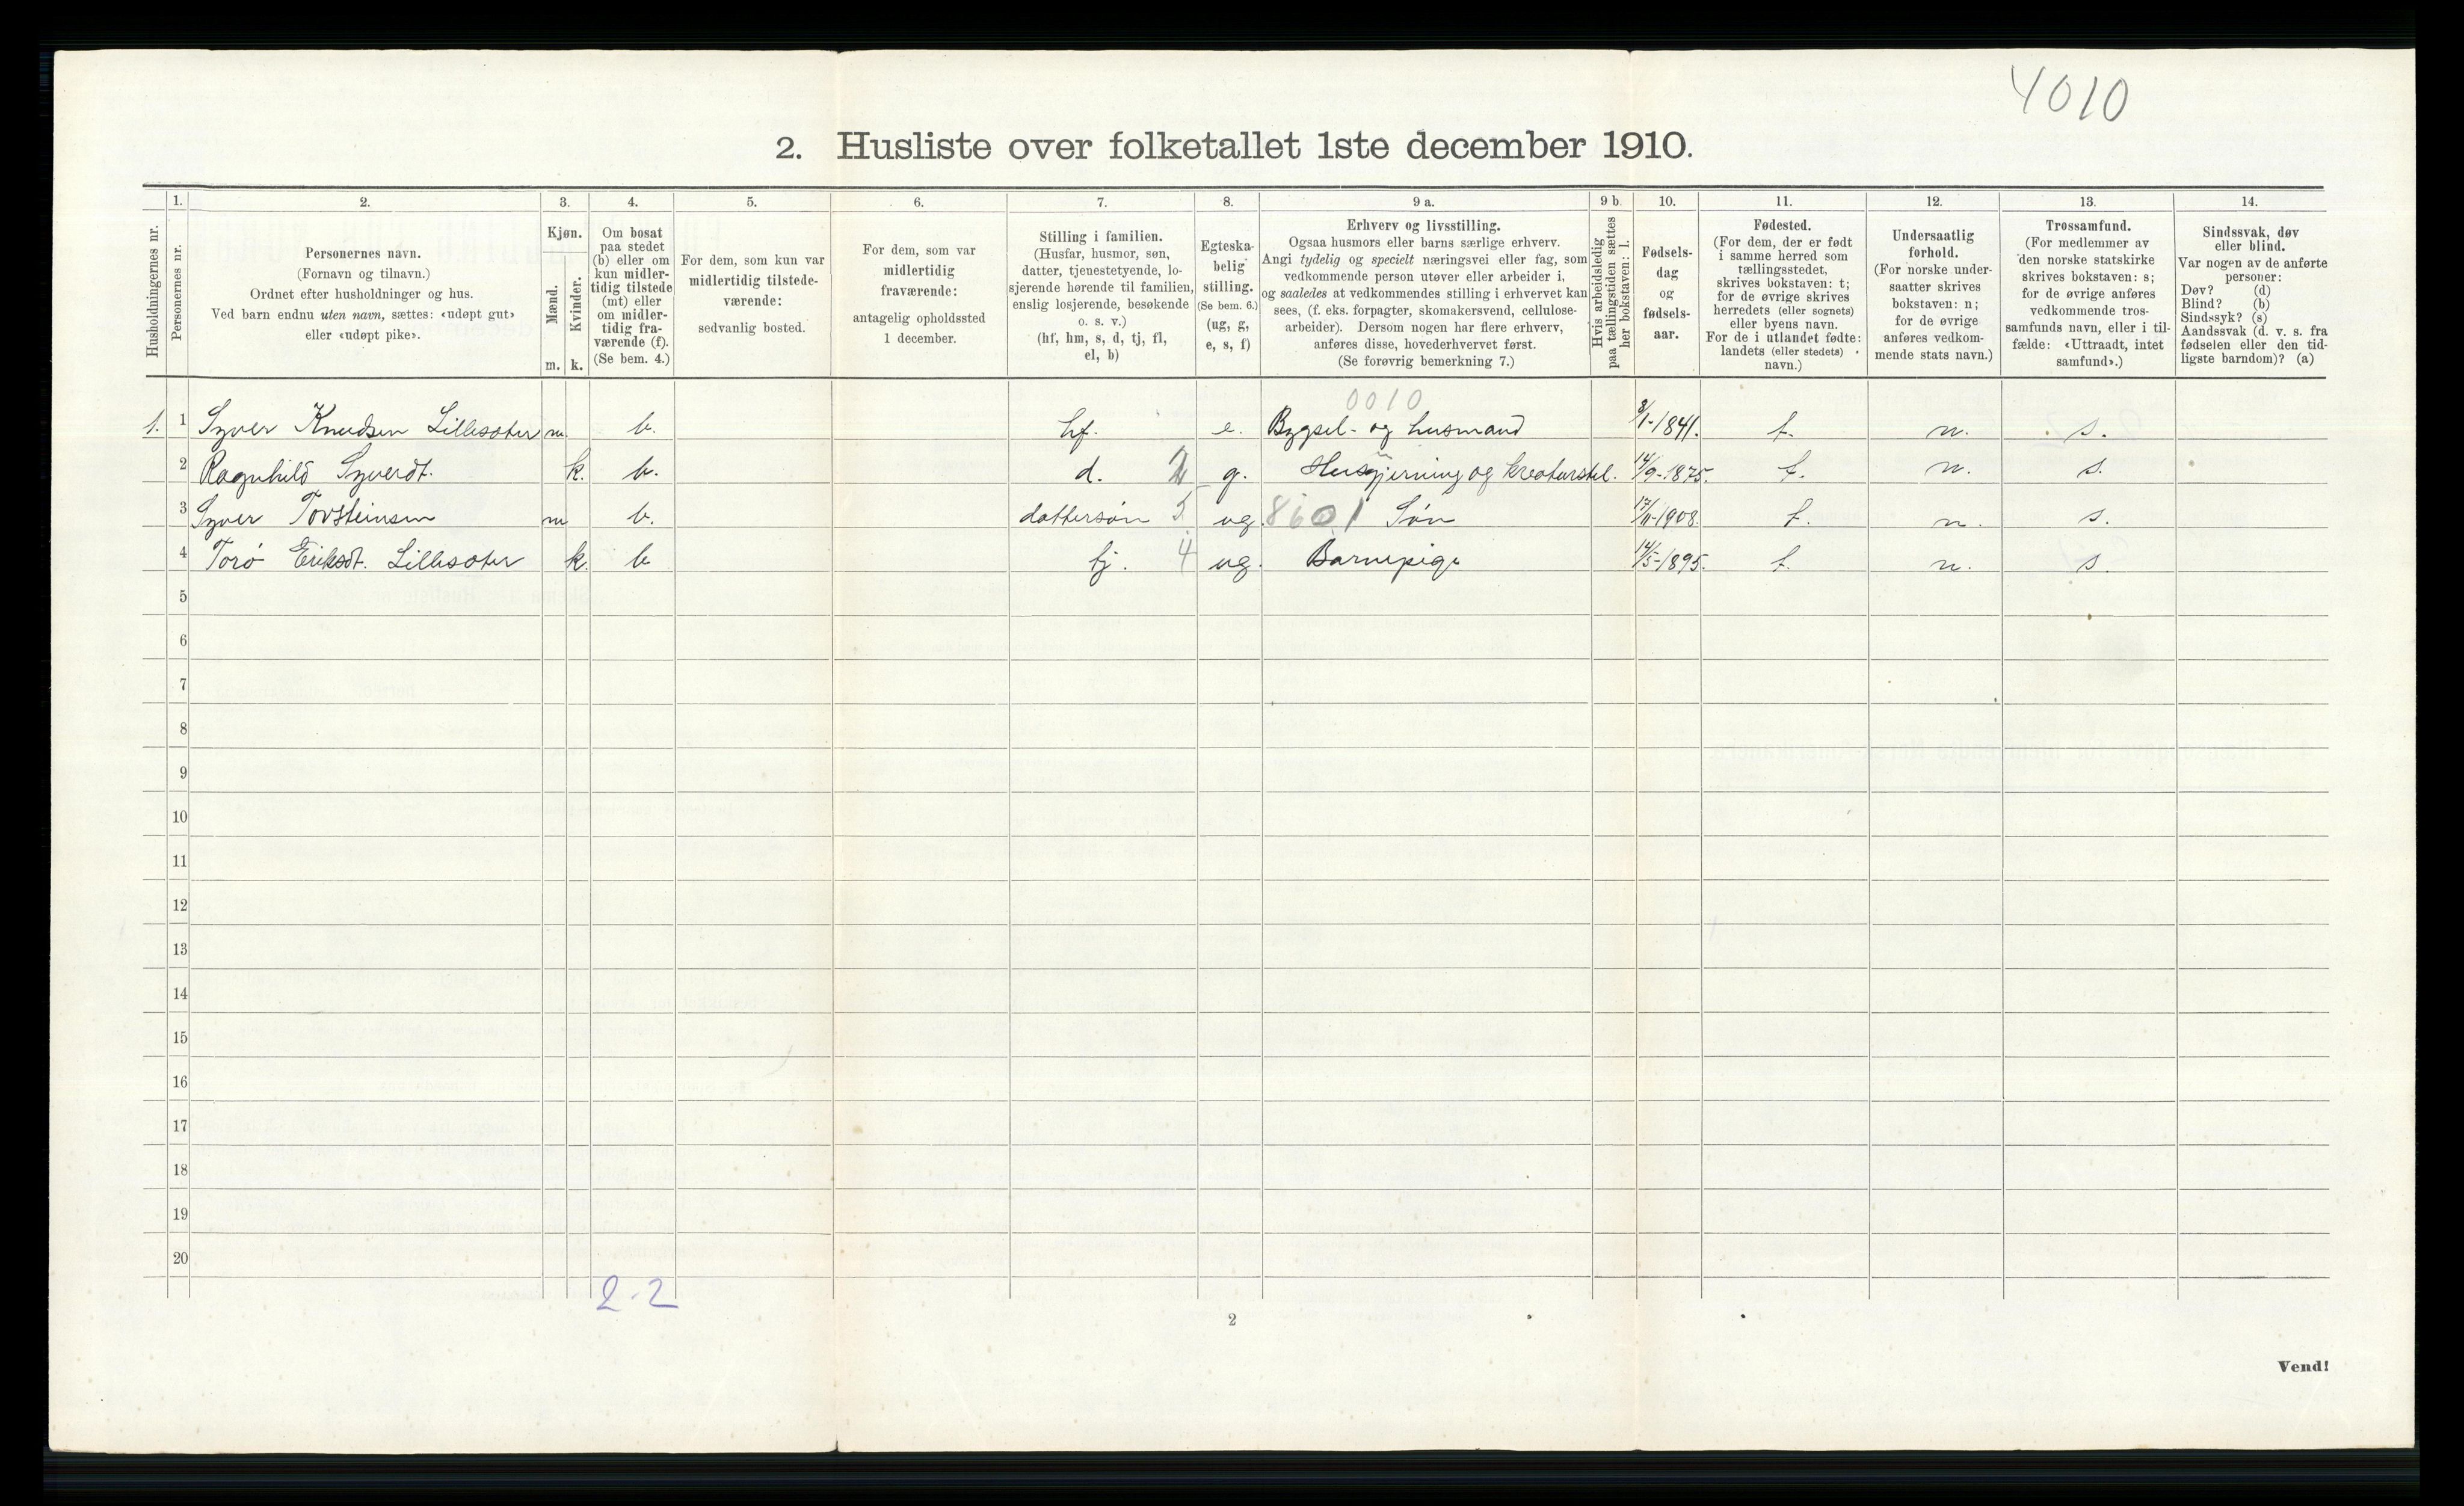 4010
2. Husliste over folketallet 1ste december 1910.
Husholdningernes nr.
1.
Personernes nr.
2.
Personernes navn.
(Fornavn og tilnavn.)
Ordnet efter husholdninger og hus.
Ved barn endnu uten navn, sættes: «udøpt gut»
eller «udøpt pike».
3.
Kjøn.
Mænd.
Kvinder.
m. k.
4.
Om bosat
paa stedet
(b) eller om
kun midler-
tidig tilstede
(mt) eller
om midler-
tidig fra-
værende (f).
(Se bem. 4.)
5.
For dem, som kun var
midlertidig tilstede-
værende:
sedvanlig bosted.
6.
For dem, som var
midlertidig
fraværende:
antagelig opholdssted
1 december.
7.
Stilling i familien.
(Husfar, husmor, søn,
datter, tjenestetyende, lo-
sjerende hørende til familien,
enslig losjerende, besøkende
o. s. v.)
(hf, hm, s, d, tj, fl,
el, b)
8.
Egteska-
belig
stilling.
(Se bem. 6.)
(ug, g,
e, s, f)
9 a.
Erhverv og livsstilling.
Ogsaa husmors eller barns særlige erhverv.
Angi tydelig og specielt næringsvei eller fag, som
vedkommende person utøver eller arbeider i,
og saaledes at vedkommendes stilling i erhvervet kan
sees, (f. eks. forpagter, skomakersvend, cellulose-
arbeider). Dersom nogen har flere erhverv,
anføres disse, hovederhvervet først.
(Se forøvrig bemerkning 7.)
9 b.
Hvis arbeidsledig
paa tællingstiden sættes
her bokstaven: l.
10.
Fødsels-
dag
og
fødsels-
aar.
11.
Fødested.
(For dem, der er født
i samme herred som
tællingsstedet,
skrives bokstaven: t;
for de øvrige skrives
herredets (eller sognets)
eller byens navn.
For de i utlandet fødte:
landets (eller stedets)
navn.)
12.
Undersaatlig
forhold.
(For norske under-
saatter skrives
bokstaven: n;
for de øvrige
anføres vedkom-
mende stats navn.)
13.
Trossamfund.
(For medlemmer av
den norske statskirke
skrives bokstaven: s;
for de øvrige anføres
vedkommende tros-
samfunds navn, eller i til-
fælde: «Uttraadt, intet
samfund».)
14.
Sindssvak, døv
eller blind.
Var nogen av de anførte
personer:
Døv? (d)
Blind? (b)
Sindssyk? (s)
Aandssvak (d. v. s. fra
fødselen eller den tid-
ligste barndom)? (a)
0010
1. 1 Syver Knudsen Lillesæter m. b. hf. e. Bygsel- og husmand 8/1-1841. t. n. s.
2 Ragnhild Syverdt. k. b. d. 2 g. Husgjerning og kreaturstel. 14/9-1875. t. n. s.
3 Syver Torsteinsen m b. dattersøn 5 ug. 8601 Søn 17/11-1908. t. n. s.
4 Torø Eriksdt. Lillesæter k. b tj. 4 ug. Barnepige 14/5-1895. t. n. s.
5
6
7
8
9
10
11
12
13
14
15
16
17
18
19
20
2-2
2
Vend!